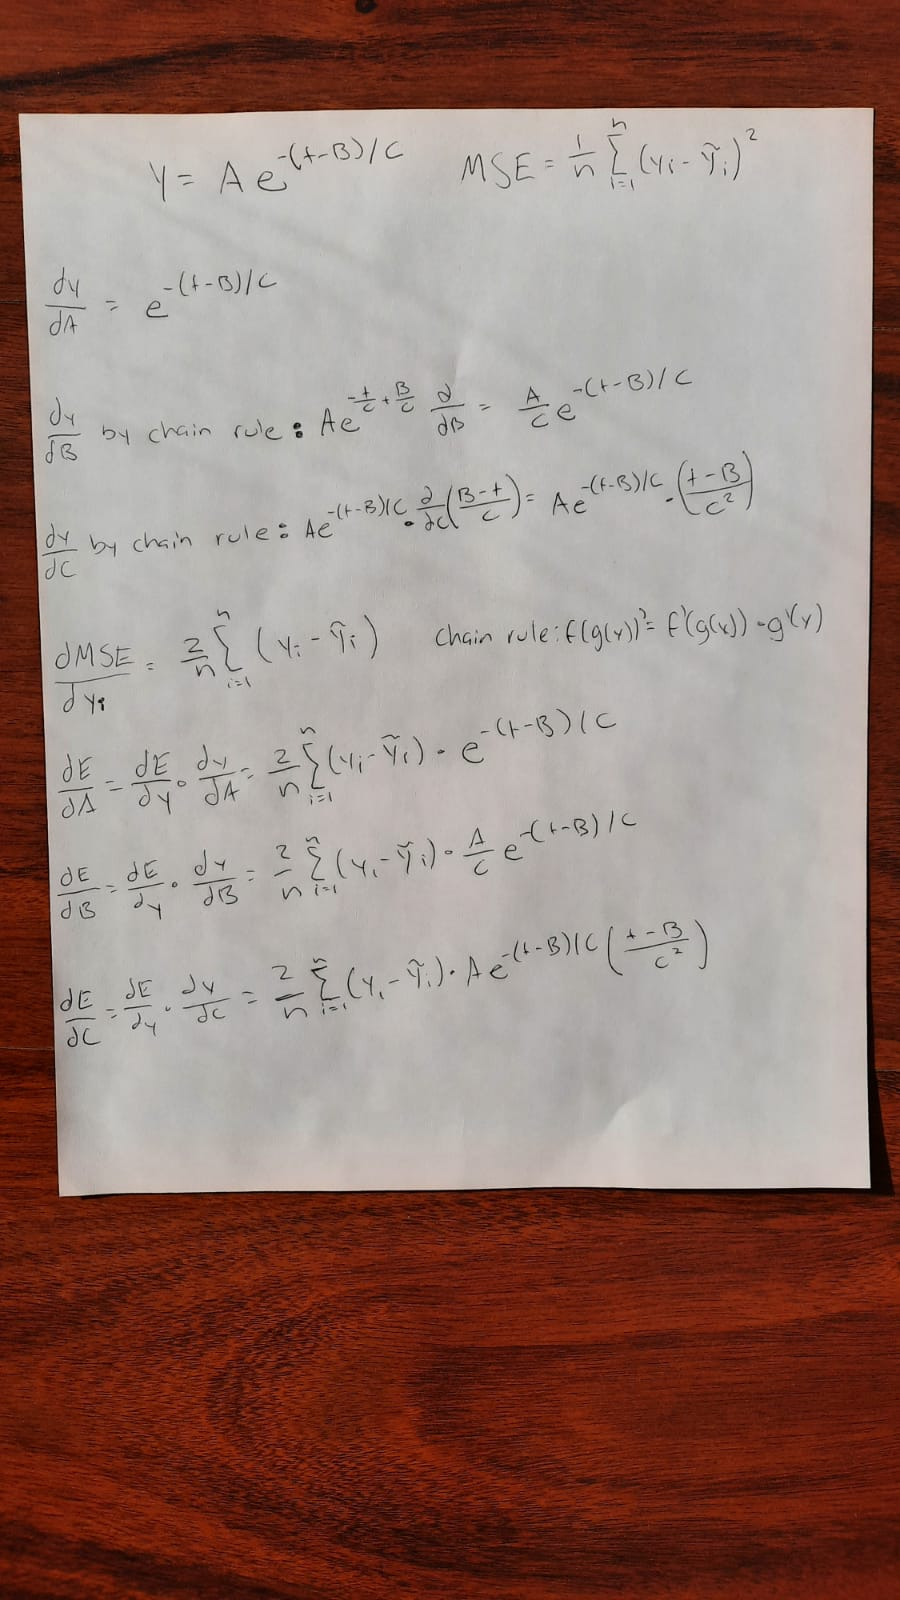 Y = A e^{-(t-B)/C} MSE = \frac{1}{n} \sum_{i=1}^{n} (y_i - ỹ_i)^2
\frac{dy}{dA} = e^{-(t-B)/C}
\frac{dy}{dB} by chain rule: Ae^{-\frac{t}{C} + \frac{B}{C}} \frac{d}{dB} = \frac{A}{C} e^{-(t-B)/C}
\frac{dy}{dC} by chain rule: Ae^{-(t-B)/C} \cdot \frac{d}{dC} (\frac{B-t}{C}) = Ae^{-(t-B)/C} \cdot (\frac{t-B}{C^2})
\frac{dMSE}{dy_i} = \frac{2}{n} \sum_{i=1}^{n} (y_i - ỹ_i) Chain rule: f(g(x))' = f'(g(x)) \cdot g'(x)
\frac{dE}{dA} = \frac{dE}{dy} \cdot \frac{dy}{dA} = \frac{2}{n} \sum_{i=1}^{n} (y_i - ỹ_i) \cdot e^{-(t-B)/C}
\frac{dE}{dB} = \frac{dE}{dy} \cdot \frac{dy}{dB} = \frac{2}{n} \sum_{i=1}^{n} (y_i - ỹ_i) \cdot \frac{A}{C} e^{-(t-B)/C}
\frac{dE}{dC} = \frac{dE}{dy} \cdot \frac{dy}{dC} = \frac{2}{n} \sum_{i=1}^{n} (y_i - ỹ_i) \cdot A e^{-(t-B)/C} (\frac{t-B}{C^2})